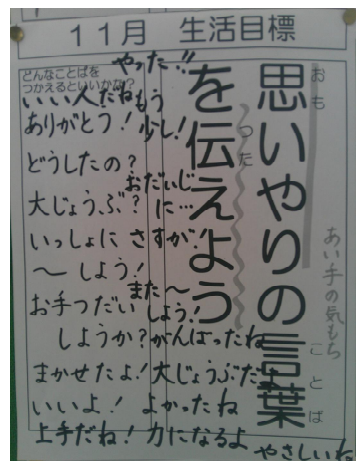 11月 生活目標
思いやりの言葉
おも
ことば
を伝えよう
つた
あい手の気もち
どんなことばを
つかえるといいかな?
やった!!
いい人だね もう
ありがとう! 少し!
どうしたの?
おだいじ
大じょうぶ? に…
いっしょに さすが!
〜しよう!
また〜
お手つだい しよう!
しようか? がんばったね
まかせたよ! 大じょうぶだよ
いいよ! よかったね
上手だね! 力になるよ
やさしいね